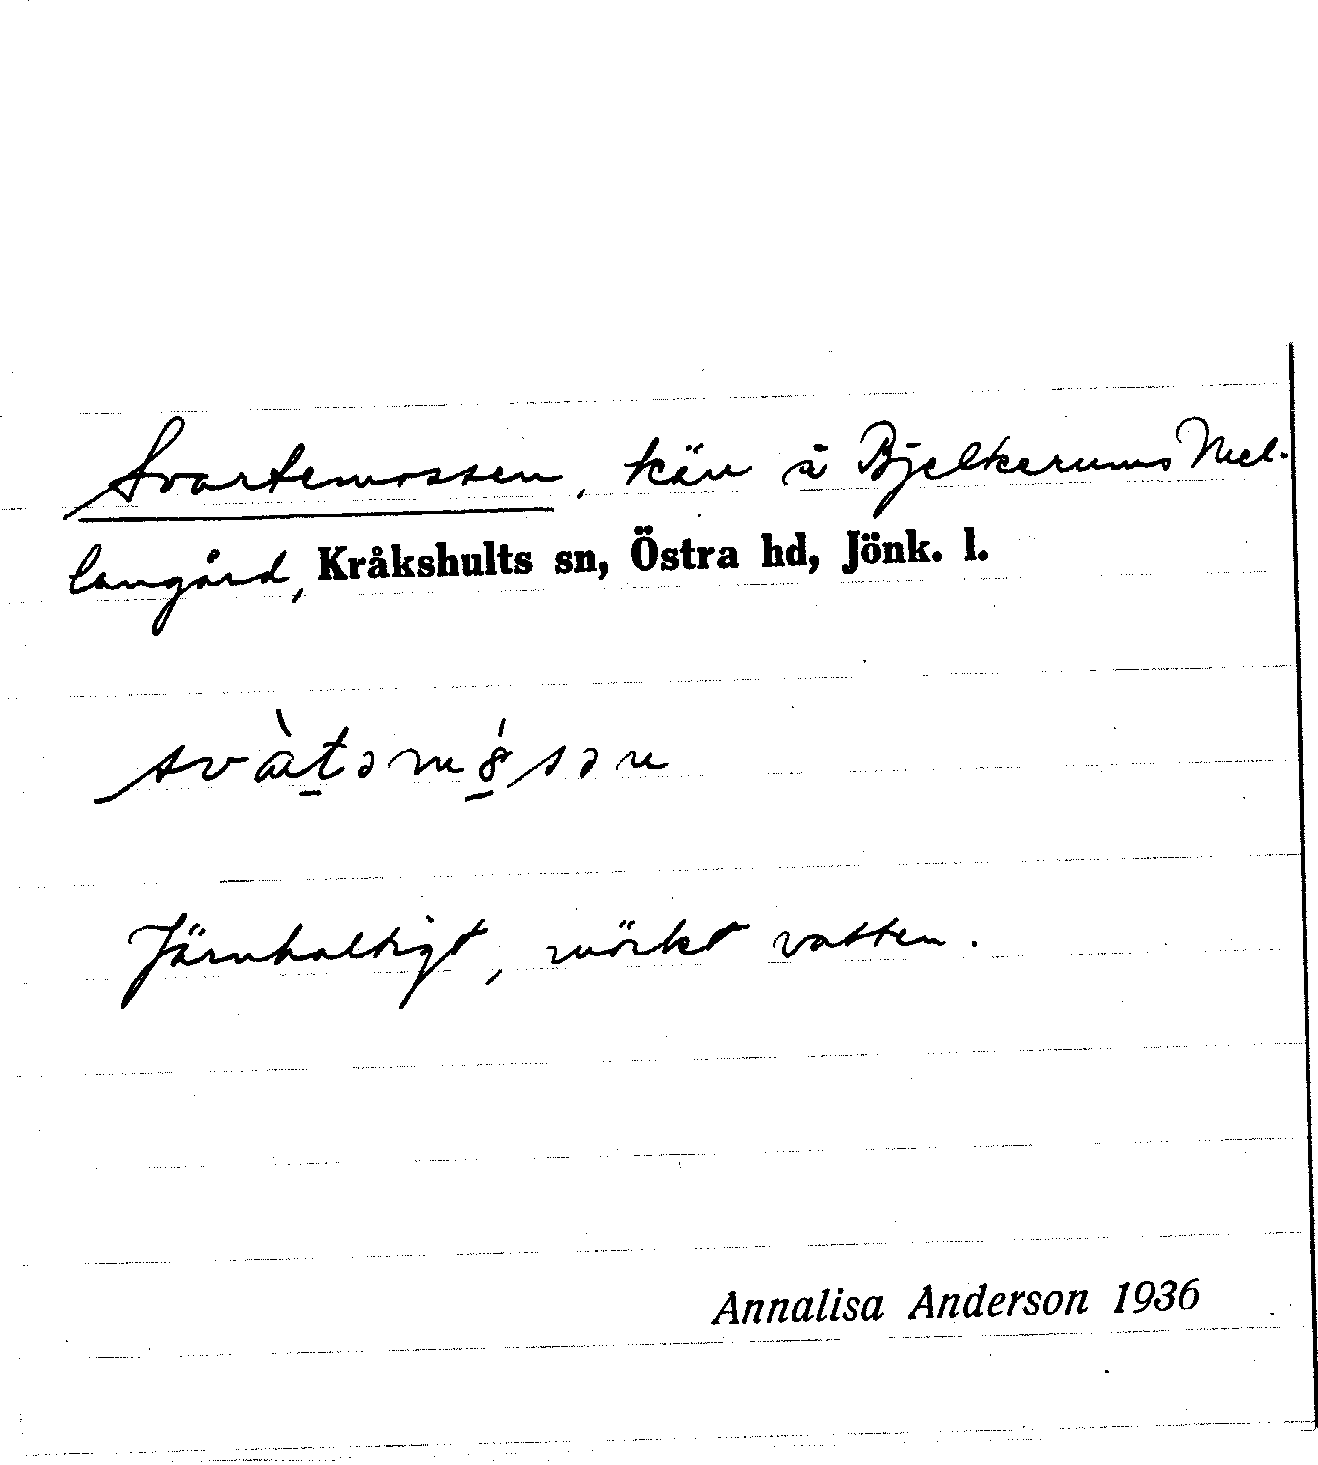 Svartemossen, kärr å Bjelkerums Mel-
langård, Kråkshults sn, Östra hd, Jönk. l.
Järnhaltigt, mörkt vatten.
Annalisa Anderson 1936